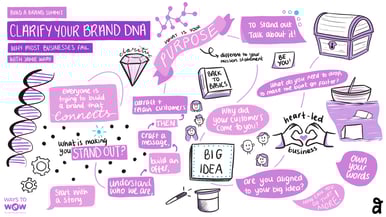 BUILD A BRAND SUMMIT
CLARIFY YOUR BRAND DNA
WHY MOST BUSINESSES FAIL
clarity
WHAT IS YOUR
PURPOSE
different to your
mission statement
To stand out
Talk about it!
BE
YOU!
BACK
TO
BASICS
everyone is
trying to build
a brand that
CONNECTS
attract + retain customers
THEN
craft a
message
build an
offer
What is making
you
STAND OUT?
Start with
a story
understand
who we are
Why did
your customers
come to you?
BIG
IDEA
are you aligned
to your big idea?
What do you need to drop,
to make the boat go faster?
heart-led
business
own
your
words
MORE!
WAYS TO
WOW